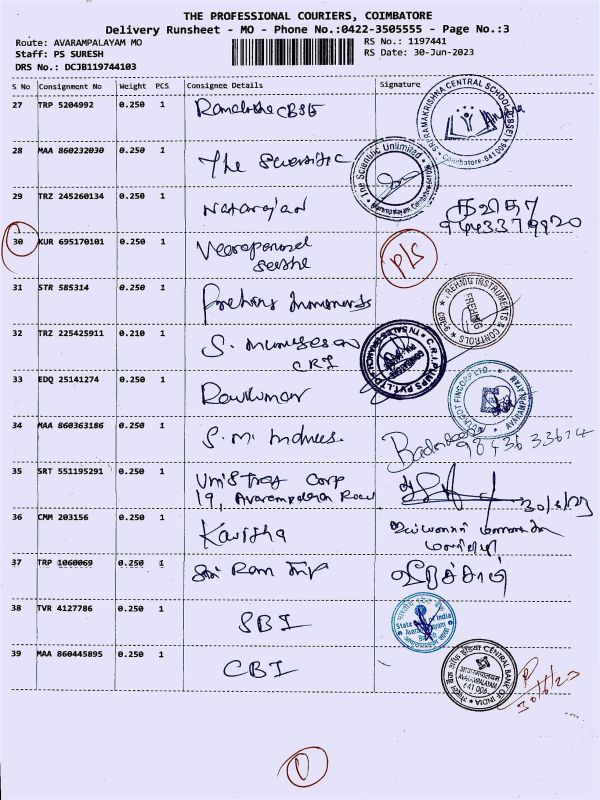 THE PROFESSIONAL COURIERS, COIMBATORE
Delivery Runsheet - MO - Phone No.:0422-3505555 - Page No.:3
Route: AVARAMPALAYAM MO
RS No.: 1197441
Staff: PS SURESH
RS Date: 30-Jun-2023
DRS No.: DCJB119744103
S No Consignment No Weight PCS Consignee Details Signature
27 TRP 5204992 0.250 1 CBSE
SRI RAMAKRISHNA CENTRAL SCHOOL (CBSE)
Coimbatore-641006
28 MAA 860232030 0.250 1 The Scientific
The Scientific Unlimited
29 TRZ 245260134 0.250 1 Natarajan
கவிதா
9443379920
30 KUR 695170101 0.250 1
P/S
31 STR 585314 0.250 1
FREHNIG INSTRUMENTS & CONTROLS
FREHNIG
CBE-6
32 TRZ 225425911 0.210 1 S. Murugesan
CRI
C.R.I. PUMPS PVT. LTD.
33 EDQ 25141274 0.250 1 Ravikumar
34 MAA 860363186 0.250 1 S.M.
9843633674
35 SRT 551195291 0.250 1 Corp
19, Avarampalayam Road
30/6/23
36 CMM 203156 0.250 1 Kavitha
37 TRP 1060069 0.250 1 Sri Ram
38 TVR 4127786 0.250 1 SBI
State Bank of India
Avarampalayam
39 MAA 860445895 0.250 1 CBI
CENTRAL BANK OF INDIA
AVARAMPALAYAM
641 006